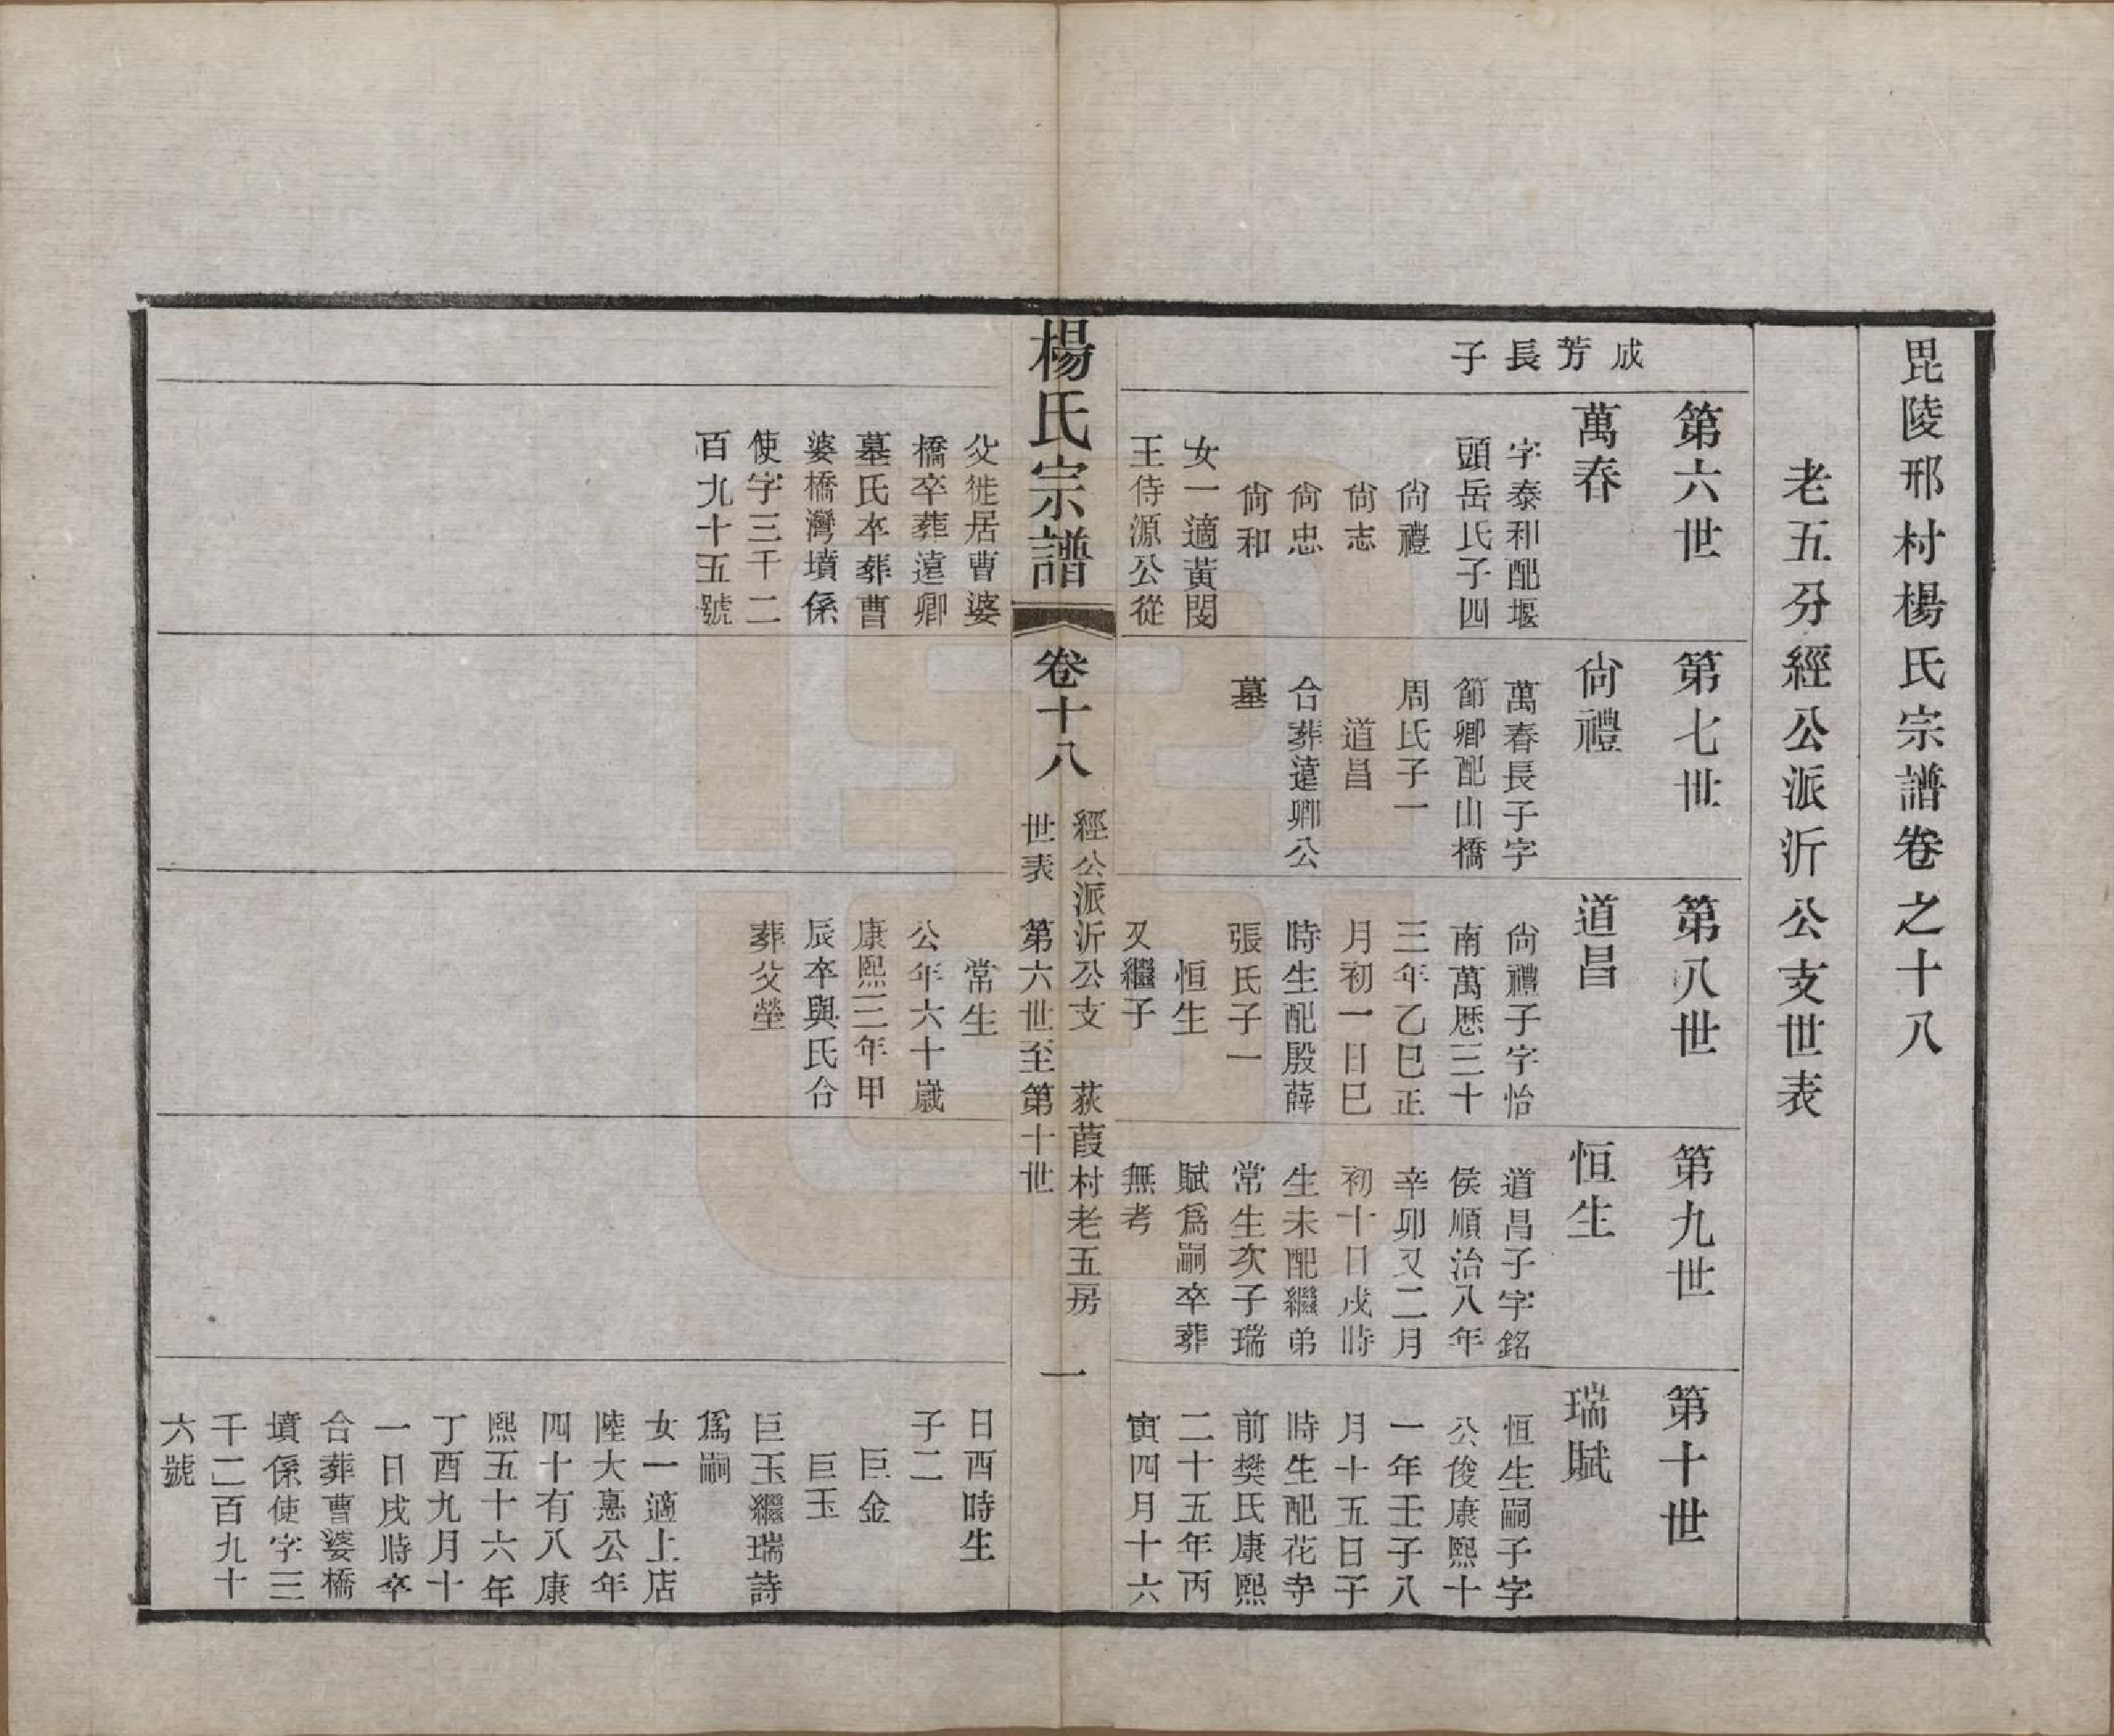 毘陵邢村楊氏宗譜卷之十八
老五分經公派沂公支世表
成芳長子
第六世
萬春
字泰和配堰
頭岳氏子四
尙禮
尙志
尙忠
尙和
女一適黃閔
王侍源公從
父徙居曹婆
橋卒葬遠卿
墓氏卒葬曹
婆橋灣墳係
使字三千二
百九十五號
第七世
尙禮
萬春長子字
節卿配山橋
周氏子一
道昌
合葬遠卿公
墓
第八世
道昌
尙禮子字怡
南萬歷三十
三年乙巳正
月初一日巳
時生配殷薛
張氏子一
恒生
又繼子
常生
公年六十歲
康熙三年甲
辰卒與氏合
葬父塋
第九世
恒生
道昌子字銘
侯順治八年
辛卯又二月
初十日戌時
生未配繼弟
常生次子瑞
賦爲嗣卒葬
無考
第十世
瑞賦
恒生嗣子字
公俊康熙十
一年壬子八
月十五日子
時生配花寺
前樊氏康熙
二十五年丙
寅四月十六
日酉時生
子二
巨金
巨玉
巨玉繼瑞詩
爲嗣
女一適上店
陸大惠公年
四十有八康
熙五十六年
丁酉九月十
一日戌時卒
合葬曹婆橋
墳係使字三
千二百九十
六號
楊氏宗譜
卷十八
經公派沂公支 荻葭村老五房
世表 第六世至第十世
一